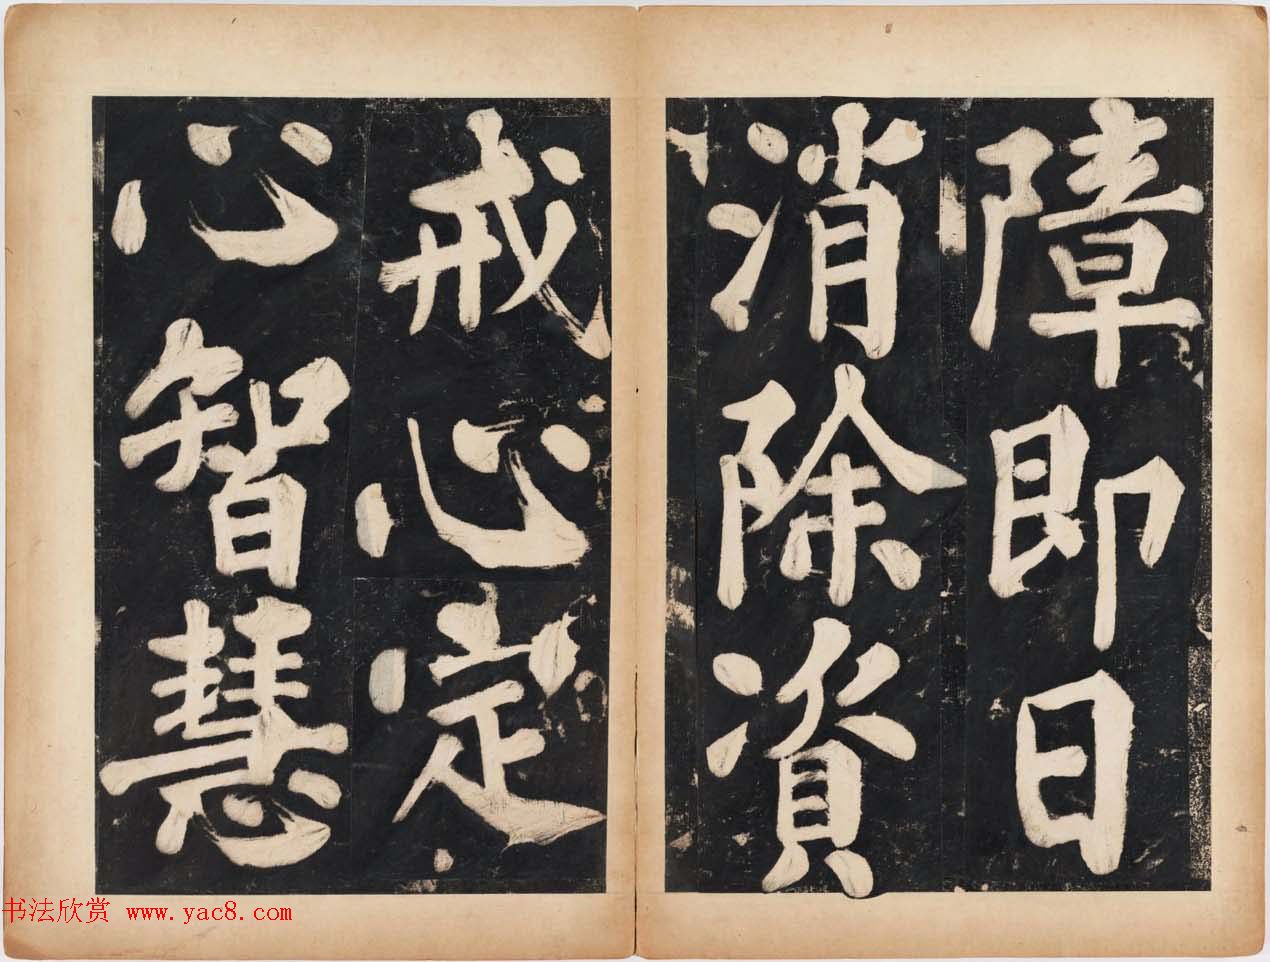 障即日
消除資
戒心定
心智慧
书法欣赏 www.yac8.com